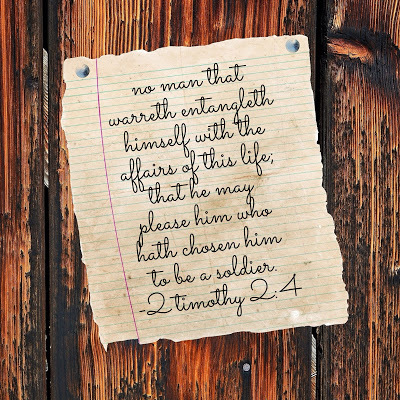 no man that
warreth entangleth
himself with the
affairs of this life;
that he may
please him who
hath chosen him
to be a soldier.
-2 timothy 2:4